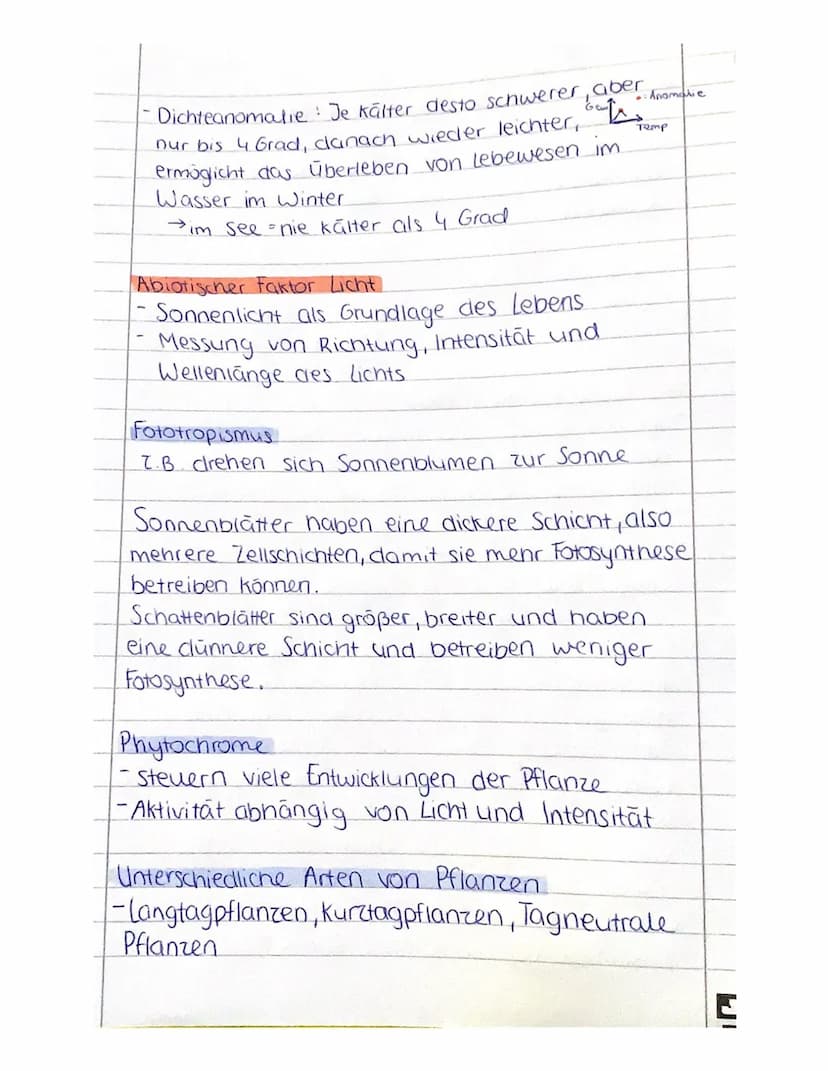 - Dichteanomalie : Je kälter desto schwerer, aber
nur bis 4 Grad, danach wieder leichter,
Gew
• : Anomalie
Temp
ermöglicht das Überleben von Lebewesen im
Wasser im Winter
→ im See = nie kälter als 4 Grad
Abiotischer Faktor Licht
- Sonnenlicht als Grundlage des Lebens
- Messung von Richtung, Intensität und
Wellenlänge des Lichts
Fototropismus
z.B. drehen sich Sonnenblumen zur Sonne
Sonnenblätter haben eine dickere Schicht, also
mehrere Zellschichten, damit sie mehr Fotosynthese
betreiben können.
Schattenblätter sind größer, breiter und haben
eine dünnere Schicht und betreiben weniger
Fotosynthese.
Phytochrome
- steuern viele Entwicklungen der Pflanze
- Aktivität abhängig von Licht und Intensität
Unterschiedliche Arten von Pflanzen
- Langtagpflanzen, Kurztagpflanzen, Tagneutrale
Pflanzen